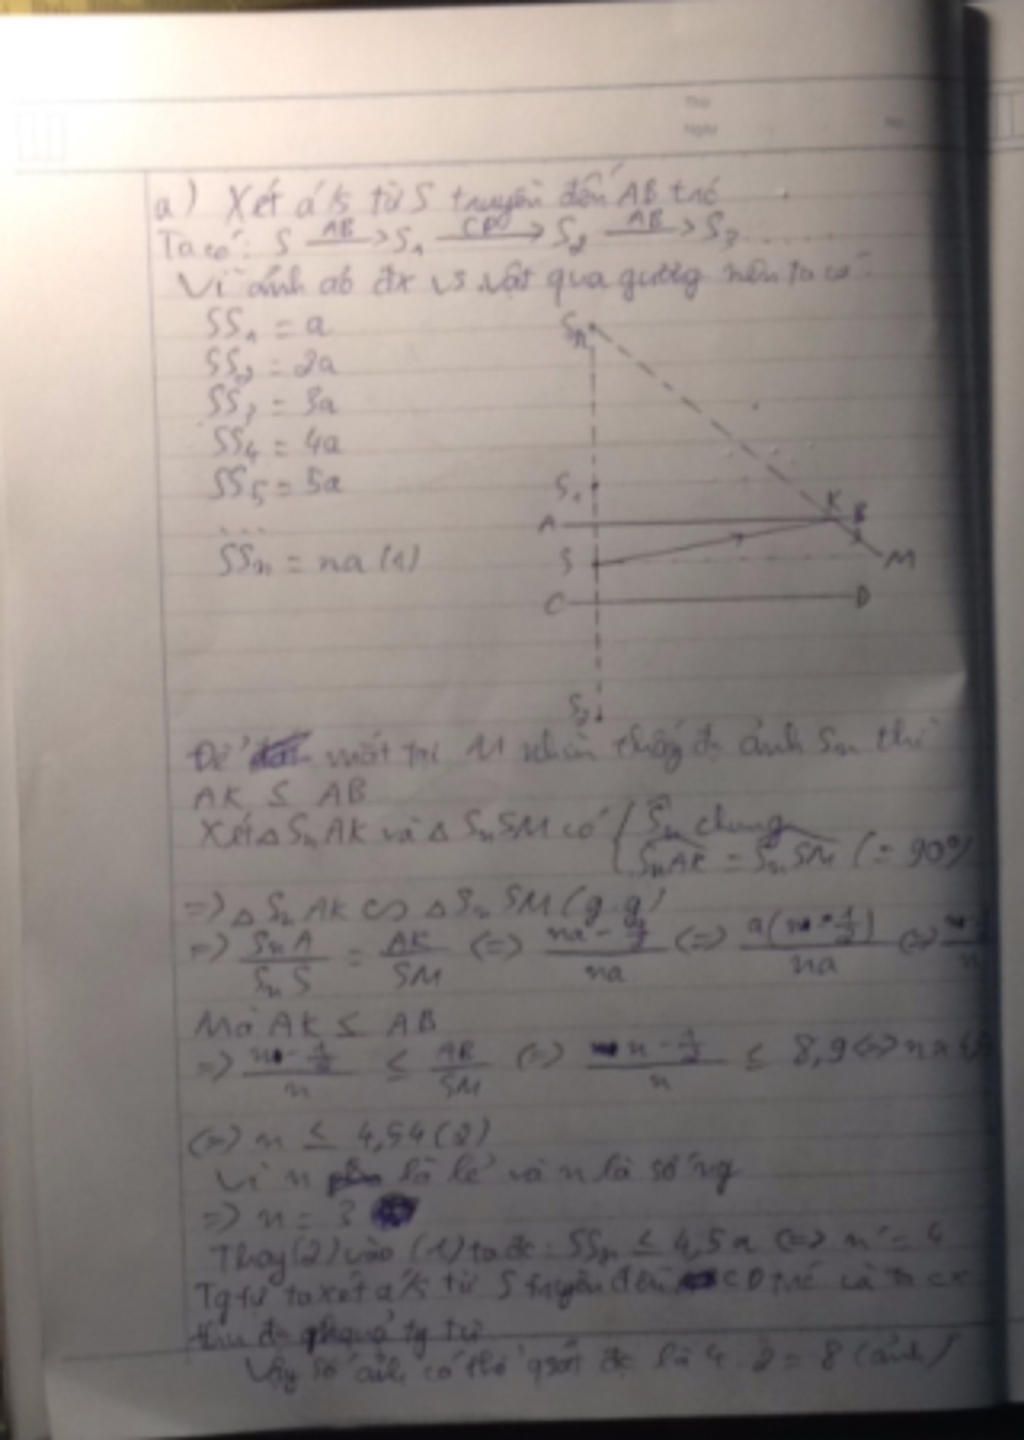 Thứ
Ngày
No.
a) Xét a/s từ S truyền đến AB trc
Ta có: S —AB→ S₁ —CD→ S₂ —AB→ S₃ .....
Vì ảnh ab đx vs vật qua gương nên ta có:
SS₁ = a
SS₂ = 2a
SS₃ = 3a
SS₄ = 4a
SS₅ = 5a
...
SSₙ = na (1)
Sₙ
S₁
A K B
S M
C D
S₂
Để mắt tại M nhìn thấy đc ảnh Sₙ thì
AK ≤ AB
Xét △ SₙAK và △ SₙSM có { Sₙ chung
SₙAK = SₙSM (= 90°)
=> △ SₙAK ∽ △ SₙSM (g.g)
=> SₙA/SₙS = AK/SM <=> (na - a/2)/na <=> a(n - 1/2)/na <=>
Mà AK ≤ AB
=> (n - 1/2)/n ≤ AB/SM <=> (n - 1/2)/n ≤ 8,9 <=>
<=> n ≤ 4,54 (2)
Vì n là lẻ và n là số ng
=> n = 3
Thay (2) vào (1) ta đc: SSₙ ≤ 4,5a <=> n = 4
Tg tự ta xét a/s từ S truyền đến CD trc và ta cx
thu đc tg tự
Vậy số ảnh có thể qsát đc là 4.2 = 8 (ảnh)